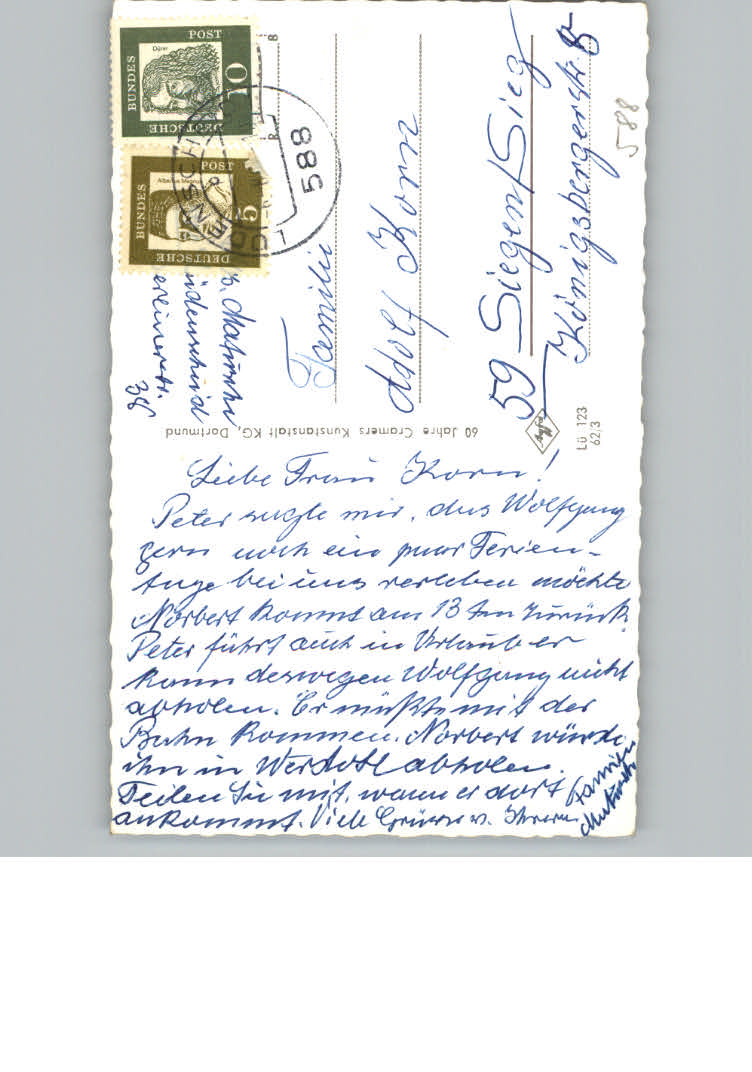 DEUTSCHE
BUNDES
POST
Dürer
10
DEUTSCHE
BUNDES
POST
Albertus Magnus
5
588
LÜDENSCHEID
Lüdenscheid
38
Familie
Adolf Korn
59 Siegen/Sieg
Königsbergerstr. 8
588
60 Jahre Cramers Kunstanstalt KG, Dortmund
Lü 123
62/3
Liebe Frau Korn!
Peter sagte mir, das Wolfgang
gern noch ein paar Ferien-
tage bei uns verleben möchte
Norbert kommt am 13ten zurück.
Peter fährt auch in Urlaub er
kann deswegen Wolfgang nicht
abholen. Er müsste mit der
Bahn kommen. Norbert würde
ihn in Werdohl abholen.
Teilen Sie mit, wann er dort
ankommt. Viele Grüsse v. Ihrer
Familie